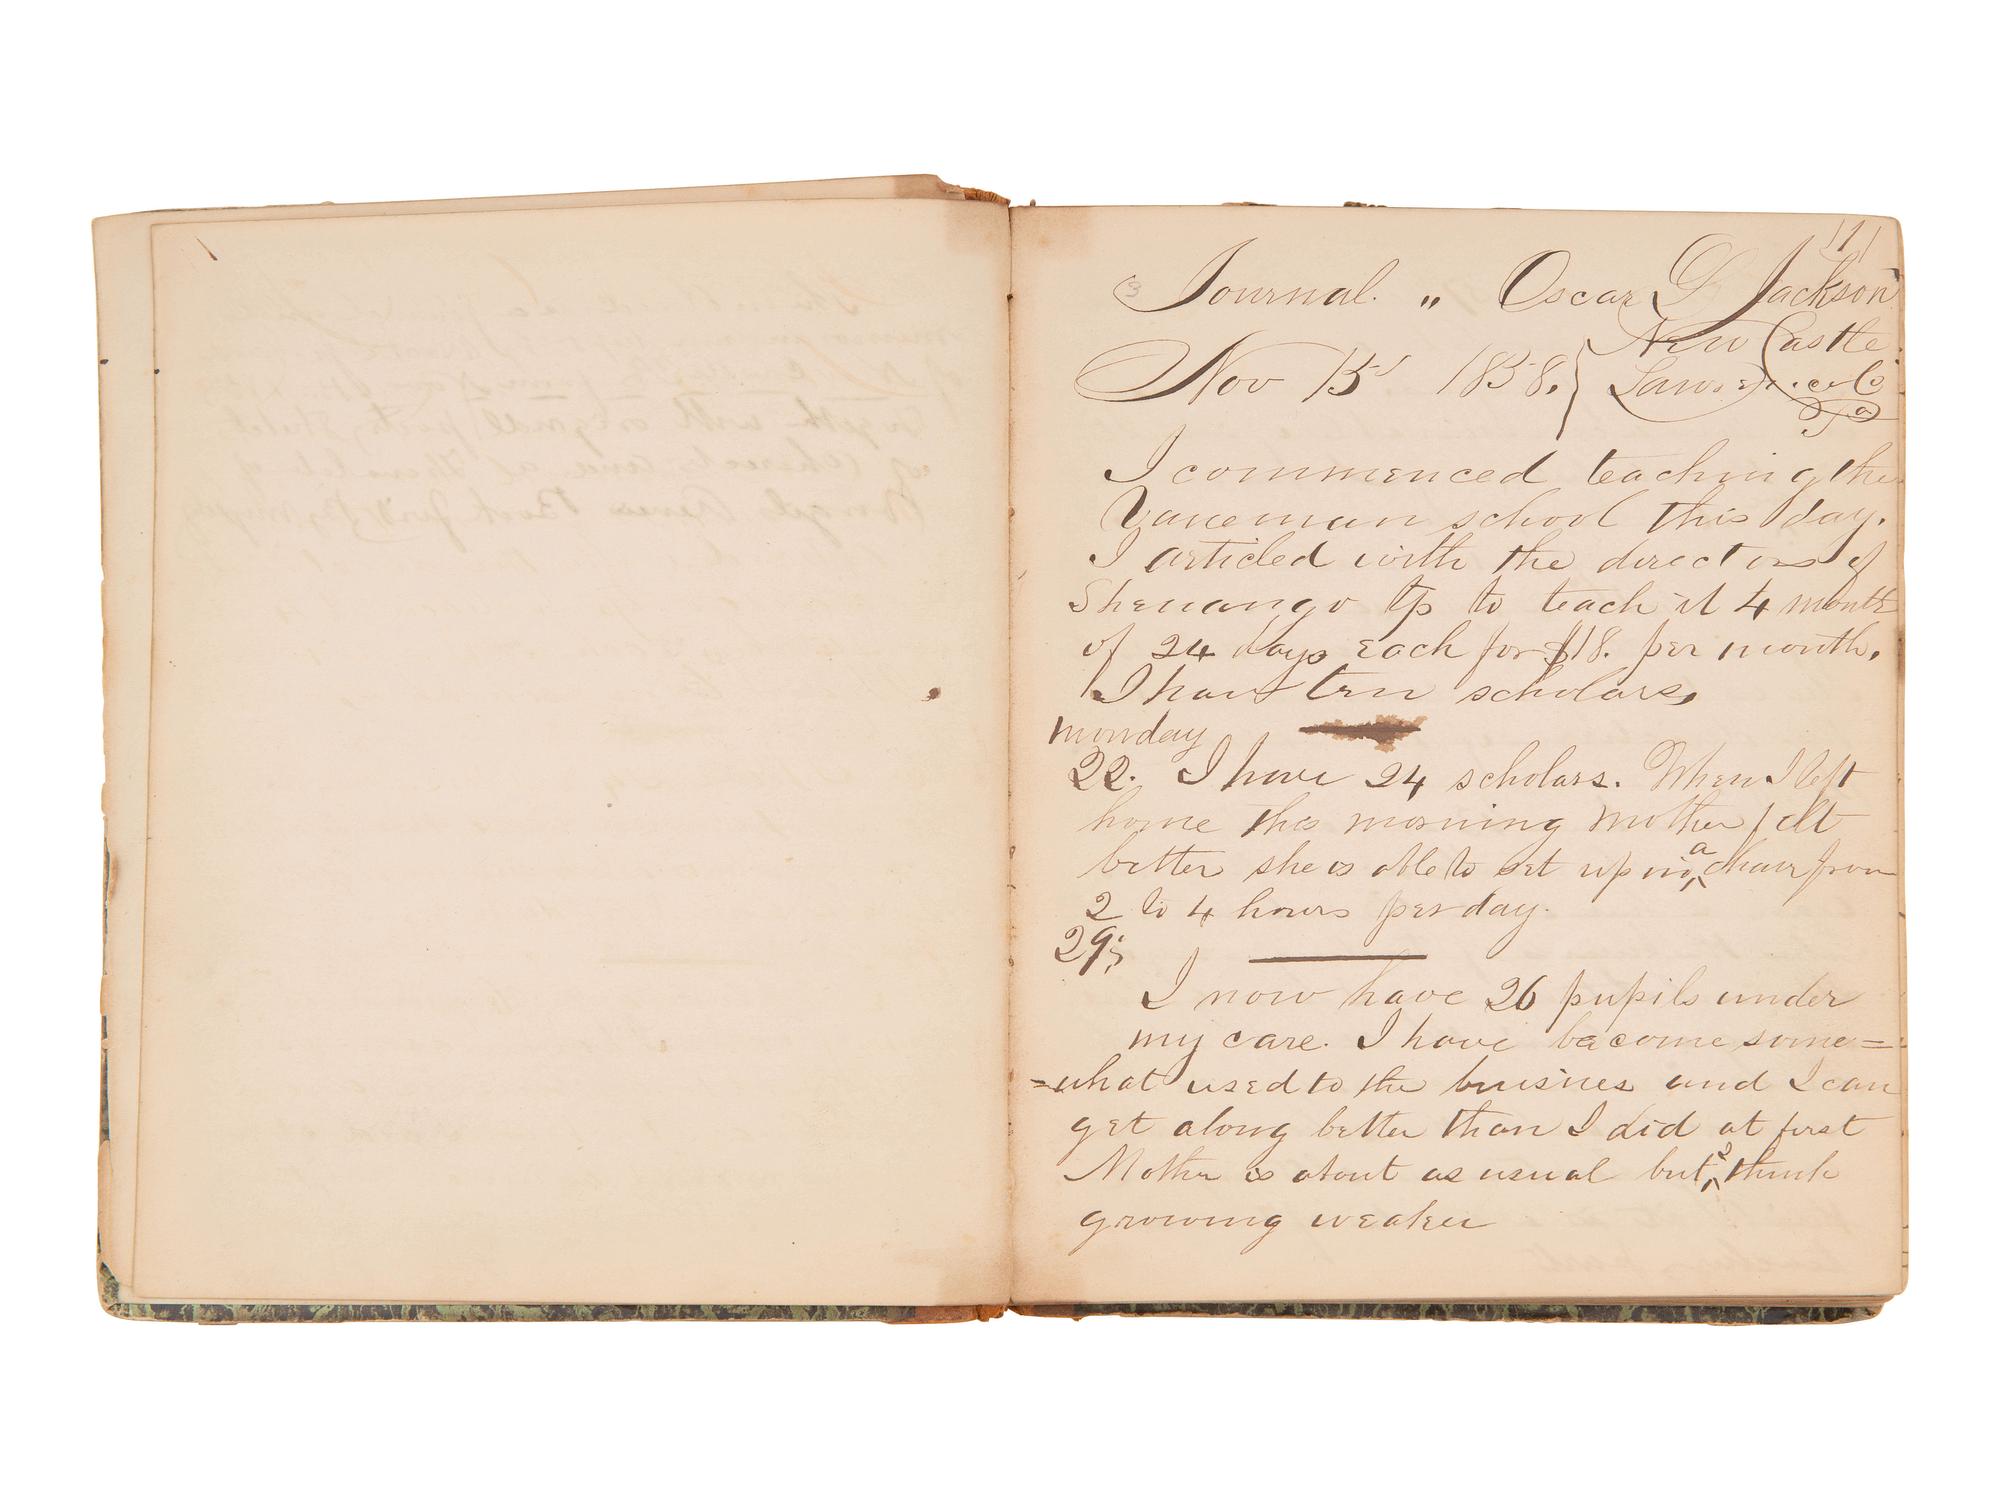 1
Journal. " Oscar L Jackson
Nov 15 1858. New Castle
Lawrence Co
Pa
I commenced teaching the
Vaneman school this day.
I articled with the directors of
Shenango Tp to teach it 4 month
of 24 days each for $18. per month.
I have ten scholars.
monday
22. I have 24 scholars. When I left
home this morning Mother felt
better she is able to set up in a chair from
2 to 4 hours per day.
29;
I now have 26 pupils under
my care. I have become some=
=what used to the buisnes and I can
get along better than I did at first
Mother is about as usual but I think
growing weaker